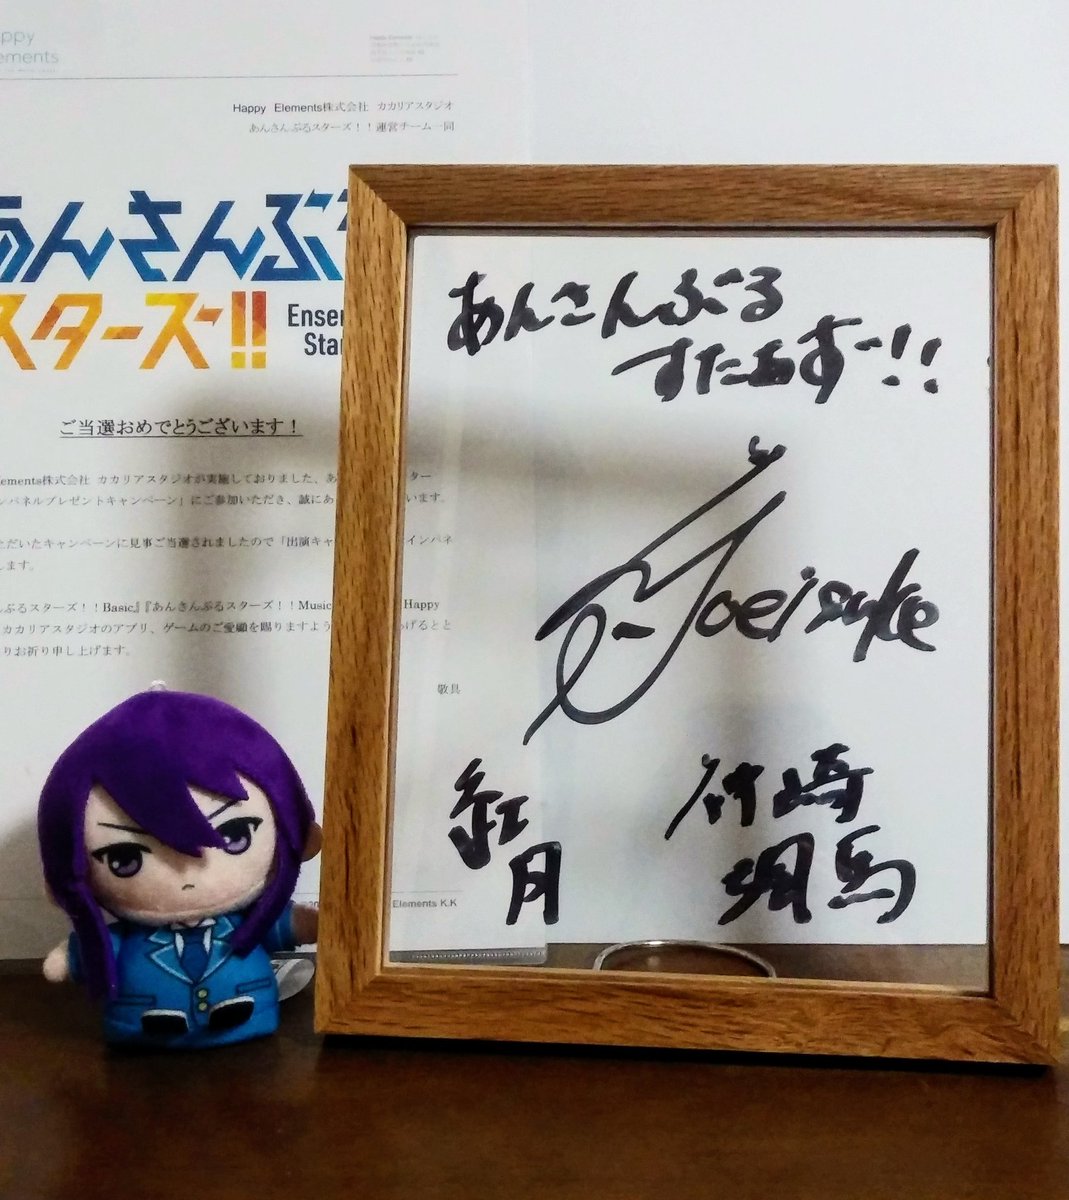 ppy
ements
Happy Elements株式会社 カカリアスタジオ
あんさんぶるスターズ！！運営チーム一同
あんさんぶ
スターズ!!
Ense
Sta
ご当選おめでとうございます！
ements株式会社 カカリアスタジオが実施しておりました、あ
ター
ンパネルプレゼントキャンペーン」にご参加いただき、誠にあ
います。
ただいたキャンペーンに見事ご当選されましたので「出演キャ
インパネ
します。
ぶるスターズ！！Basic』『あんさんぶるスターズ！！Music
Happy
カカリアスタジオのアプリ、ゲームのご愛顧を賜りますよう
げるとと
りお祈り申し上げます。
敬具
Elements K.K
あんさんぶる
すたあずー!!
紅月
神崎
颯馬